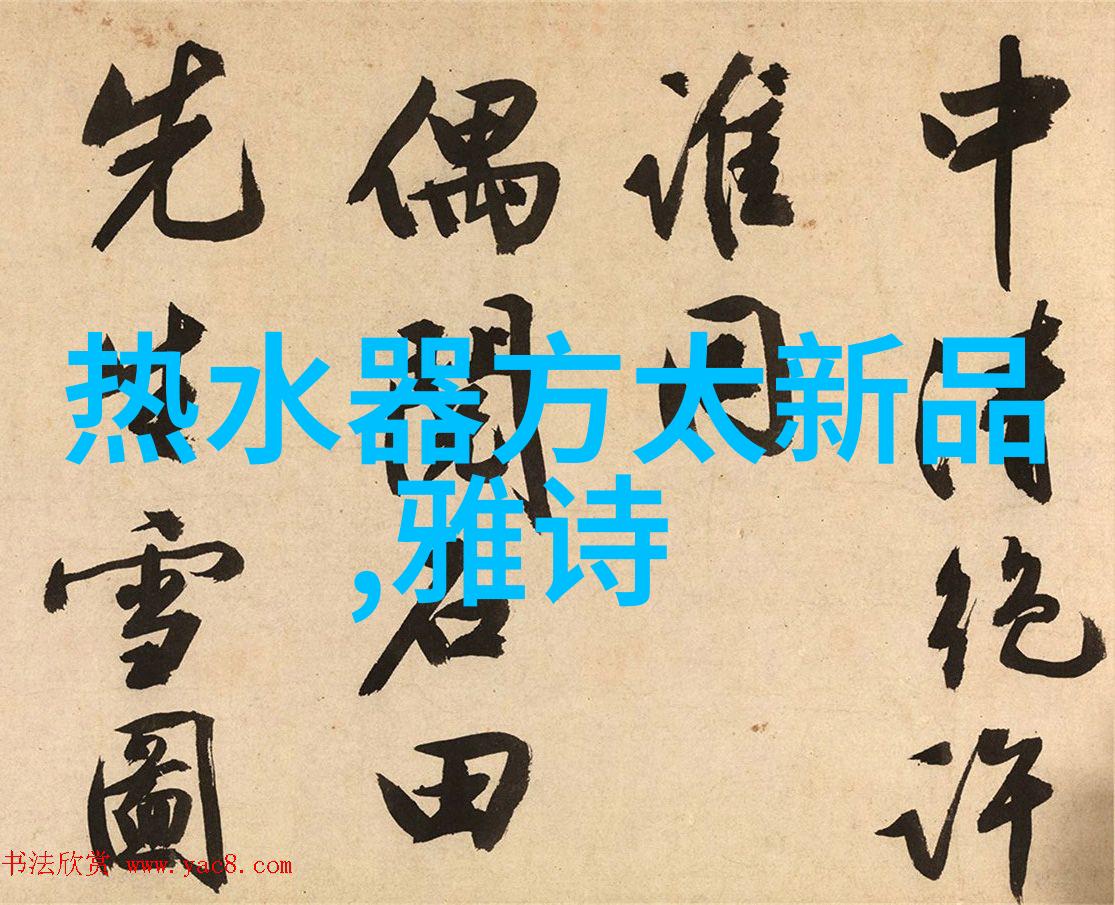 中清绝许
谁同
偶閱石田
先生雪圖
热水器方太新品
,雅诗
书法欣赏 www.yac8.com